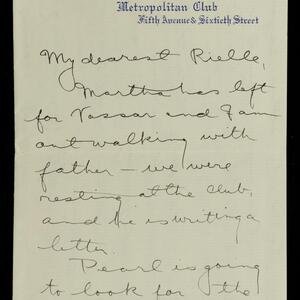 Metropolitan Club
Fifth Avenue & Sixtieth Street
My dearest Rielle,
Martha has left
for Vassar and I am
out walking with
father – we were
resting at the club,
and he is writing a
letter.
Pearl is going
to look for the